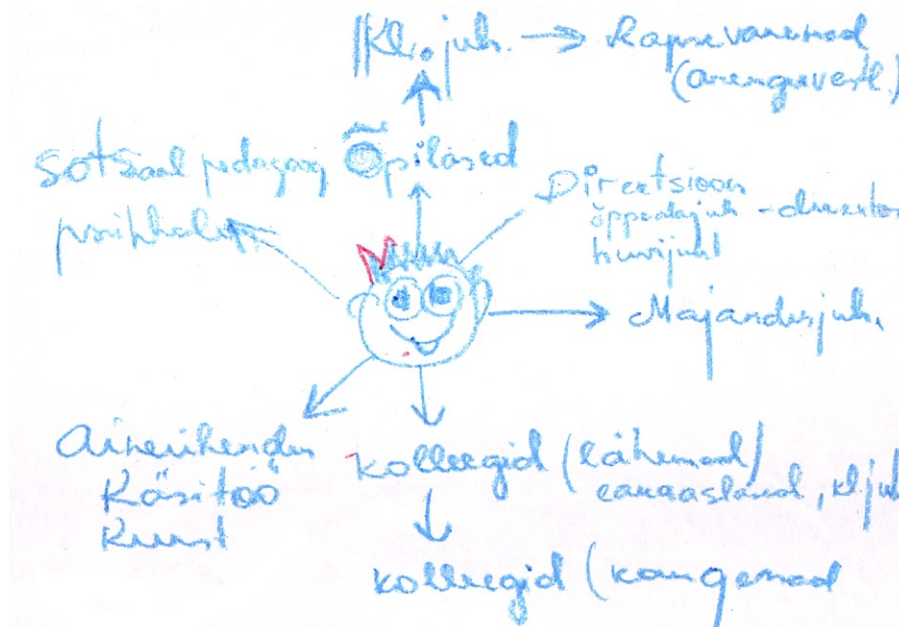 Kl. juh. → Lapsevanemad
(arenguvestl.)
Õpilased
sotsiaal pedagoog
psühholoog
Direktsioon
õppealajuh - direktor
huvijuht
Majandusjuh.
Aineühendus
Käsitöö
Kunst
kolleegid (lähemad)
eakaaslased, kl. juh
kolleegid (kaugemad